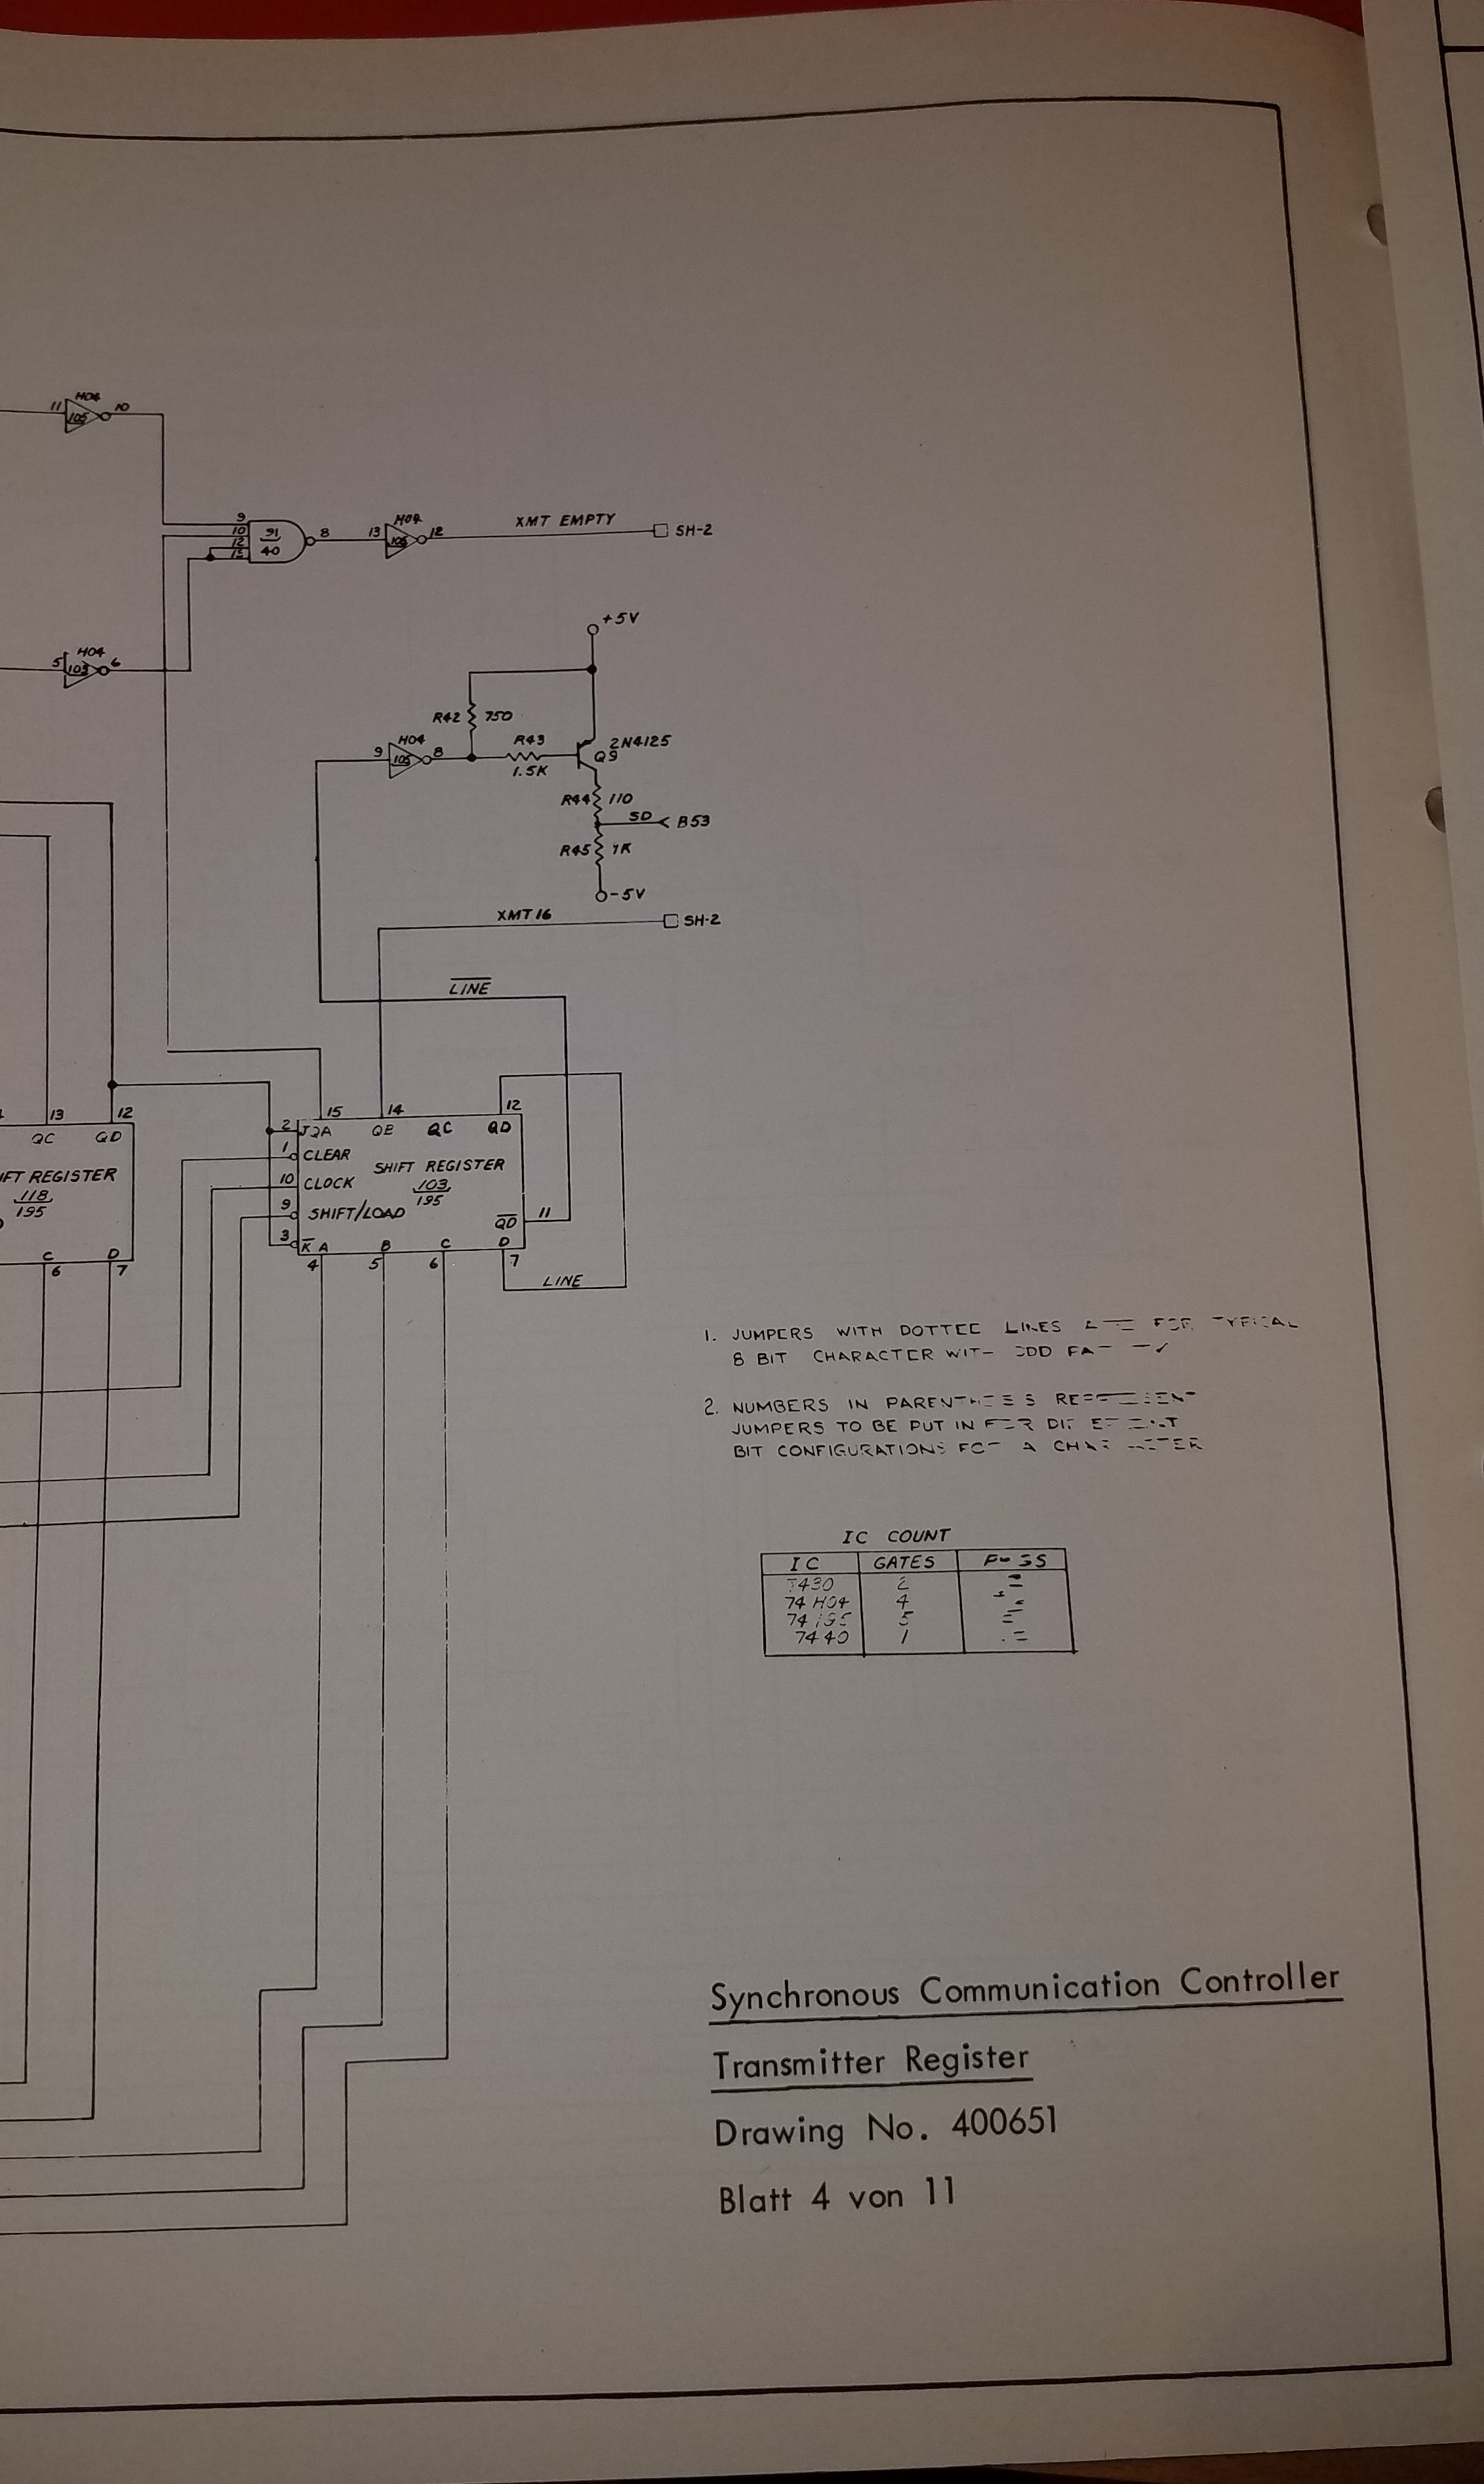 H04
11 105 10
9
10
12
13
91
40
8
13 H04 12
XMT EMPTY
SH-2
+5V
5 H04 6
103
R42 750
2N4125
Q9
9 H04 8
105
R43
1.5K
R44 110
SD B53
R45 1K
-5V
XMT16
SH-2
LINE
13 12
QC QD
SHIFT REGISTER
118
195
C D
6 7
15 14 12
2 J QA QB QC QD
1 CLEAR
SHIFT REGISTER
10 CLOCK
103
195
9 SHIFT/LOAD
QD 11
3 K A B C D
4 5 6 7
LINE
1. JUMPERS WITH DOTTED LINES FOR TYPICAL
8 BIT CHARACTER WITH ODD
2. NUMBERS IN PARENTHESES REPRESENT
JUMPERS TO BE PUT IN FOR DIFFERENT
BIT CONFIGURATIONS FOR A CHARACTER
IC COUNT
IC GATES
7430 2
74H04 4
74195 5
7440 1
Synchronous Communication Controller
Transmitter Register
Drawing No. 400651
Blatt 4 von 11